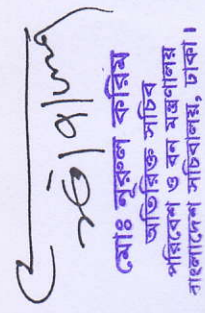 মোঃ নূরুল করিম
অতিরিক্ত সচিব
পরিবেশ ও বন মন্ত্রণালয়
বাংলাদেশ সচিবালয়, ঢাকা।